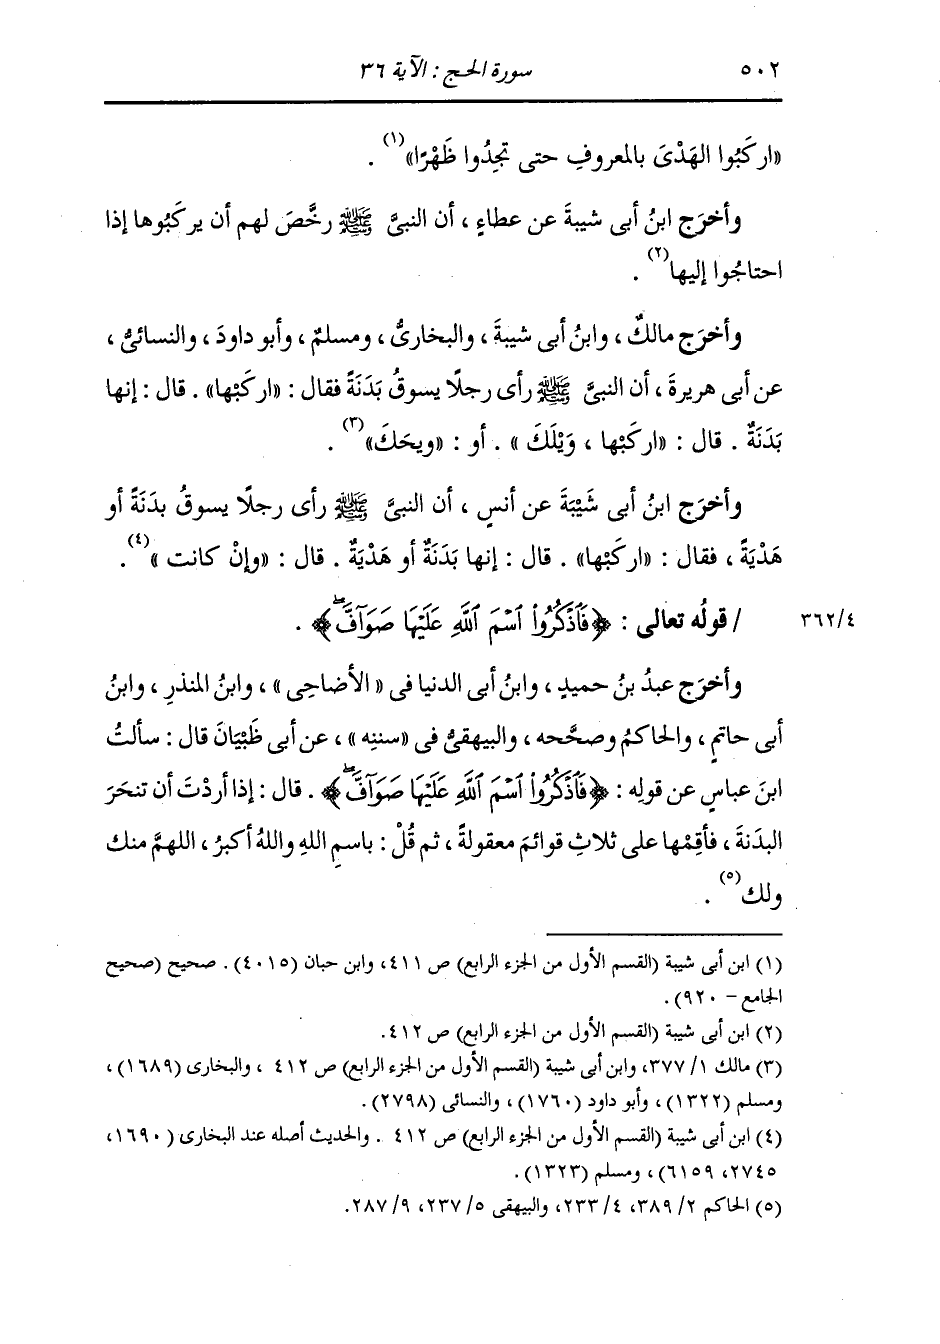 ٥٠٢ سورة الحج : الآية ٣٦
«اركَبُوا الهَدْىَ بالمعروفِ حتى تجِدُوا ظَهْرًا»(١) .
وأخرَج ابنُ أبى شيبةَ عن عطاءٍ ، أن النبىَّ ﷺ رخَّصَ لهم أن يركَبُوها إذا
احتاجُوا إليها(٢) .
وأخرَج مالكٌ ، وابنُ أبى شيبةَ ، والبخارىُّ ، ومسلمٌ ، وأبو داودَ ، والنسائىُّ ،
عن أبى هريرةَ ، أن النبىَّ ﷺ رأى رجلًا يسوقُ بَدَنَةً فقال : «اركَبْها» . قال : إنها
بَدَنَةٌ . قال : «اركَبْها ، وَيْلَكَ » . أو : «ويحَكَ»(٣) .
وأخرَج ابنُ أبى شَيْبَةَ عن أنسٍ ، أن النبىَّ ﷺ رأى رجلًا يسوقُ بدَنَةً أو
هَدْيَةً ، فقال : «اركَبْها» . قال : إنها بَدَنَةٌ أو هَدْيَةٌ . قال : «وإنْ كانت »(٤) .
٣٦٢/٤ / قولُه تعالى : ﴿فَٱذۡكُرُواْ ٱسۡمَ ٱللَّهِ عَلَيۡهَا صَوَآفَّۖ﴾ .
وأخرَج عبدُ بنُ حميدٍ ، وابنُ أبى الدنيا فى « الأضاحِى » ، وابنُ المنذرِ ، وابنُ
أبى حاتمٍ ، والحاكمُ وصحَّحه ، والبيهقىُّ فى «سننِه » ، عن أبى ظَبْيَانَ قال : سألتُ
ابنَ عباسٍ عن قولِه : ﴿فَٱذۡكُرُواْ ٱسۡمَ ٱللَّهِ عَلَيۡهَا صَوَآفَّۖ﴾ . قال : إذا أردْتَ أن تنحَرَ
البدَنةَ ، فأقِمْها على ثلاثِ قوائمَ معقولةً ، ثم قُلْ : باسمِ اللهِ واللهُ أكبرُ ، اللهمَّ منك
ولك(٥) .
(١) ابن أبى شيبة (القسم الأول من الجزء الرابع) ص ٤١١، وابن حبان (٤٠١٥) . صحيح (صحيح
الجامع – ٩٢٠).
(٢) ابن أبى شيبة (القسم الأول من الجزء الرابع) ص ٤١٢.
(٣) مالك ١/ ٣٧٧، وابن أبى شيبة (القسم الأول من الجزء الرابع) ص ٤١٢ ، والبخارى (١٦٨٩) ،
ومسلم (١٣٢٢) ، وأبو داود (١٧٦٠) ، والنسائى (٢٧٩٨).
(٤) ابن أبى شيبة (القسم الأول من الجزء الرابع) ص ٤١٢ . والحديث أصله عند البخارى (١٦٩٠،
٢٧٤٥، ٦١٥٩) ، ومسلم (١٣٢٣).
(٥) الحاكم ٢/ ٣٨٩، ٤/ ٢٣٣، والبيهقى ٥/ ٢٣٧، ٩/ ٢٨٧.